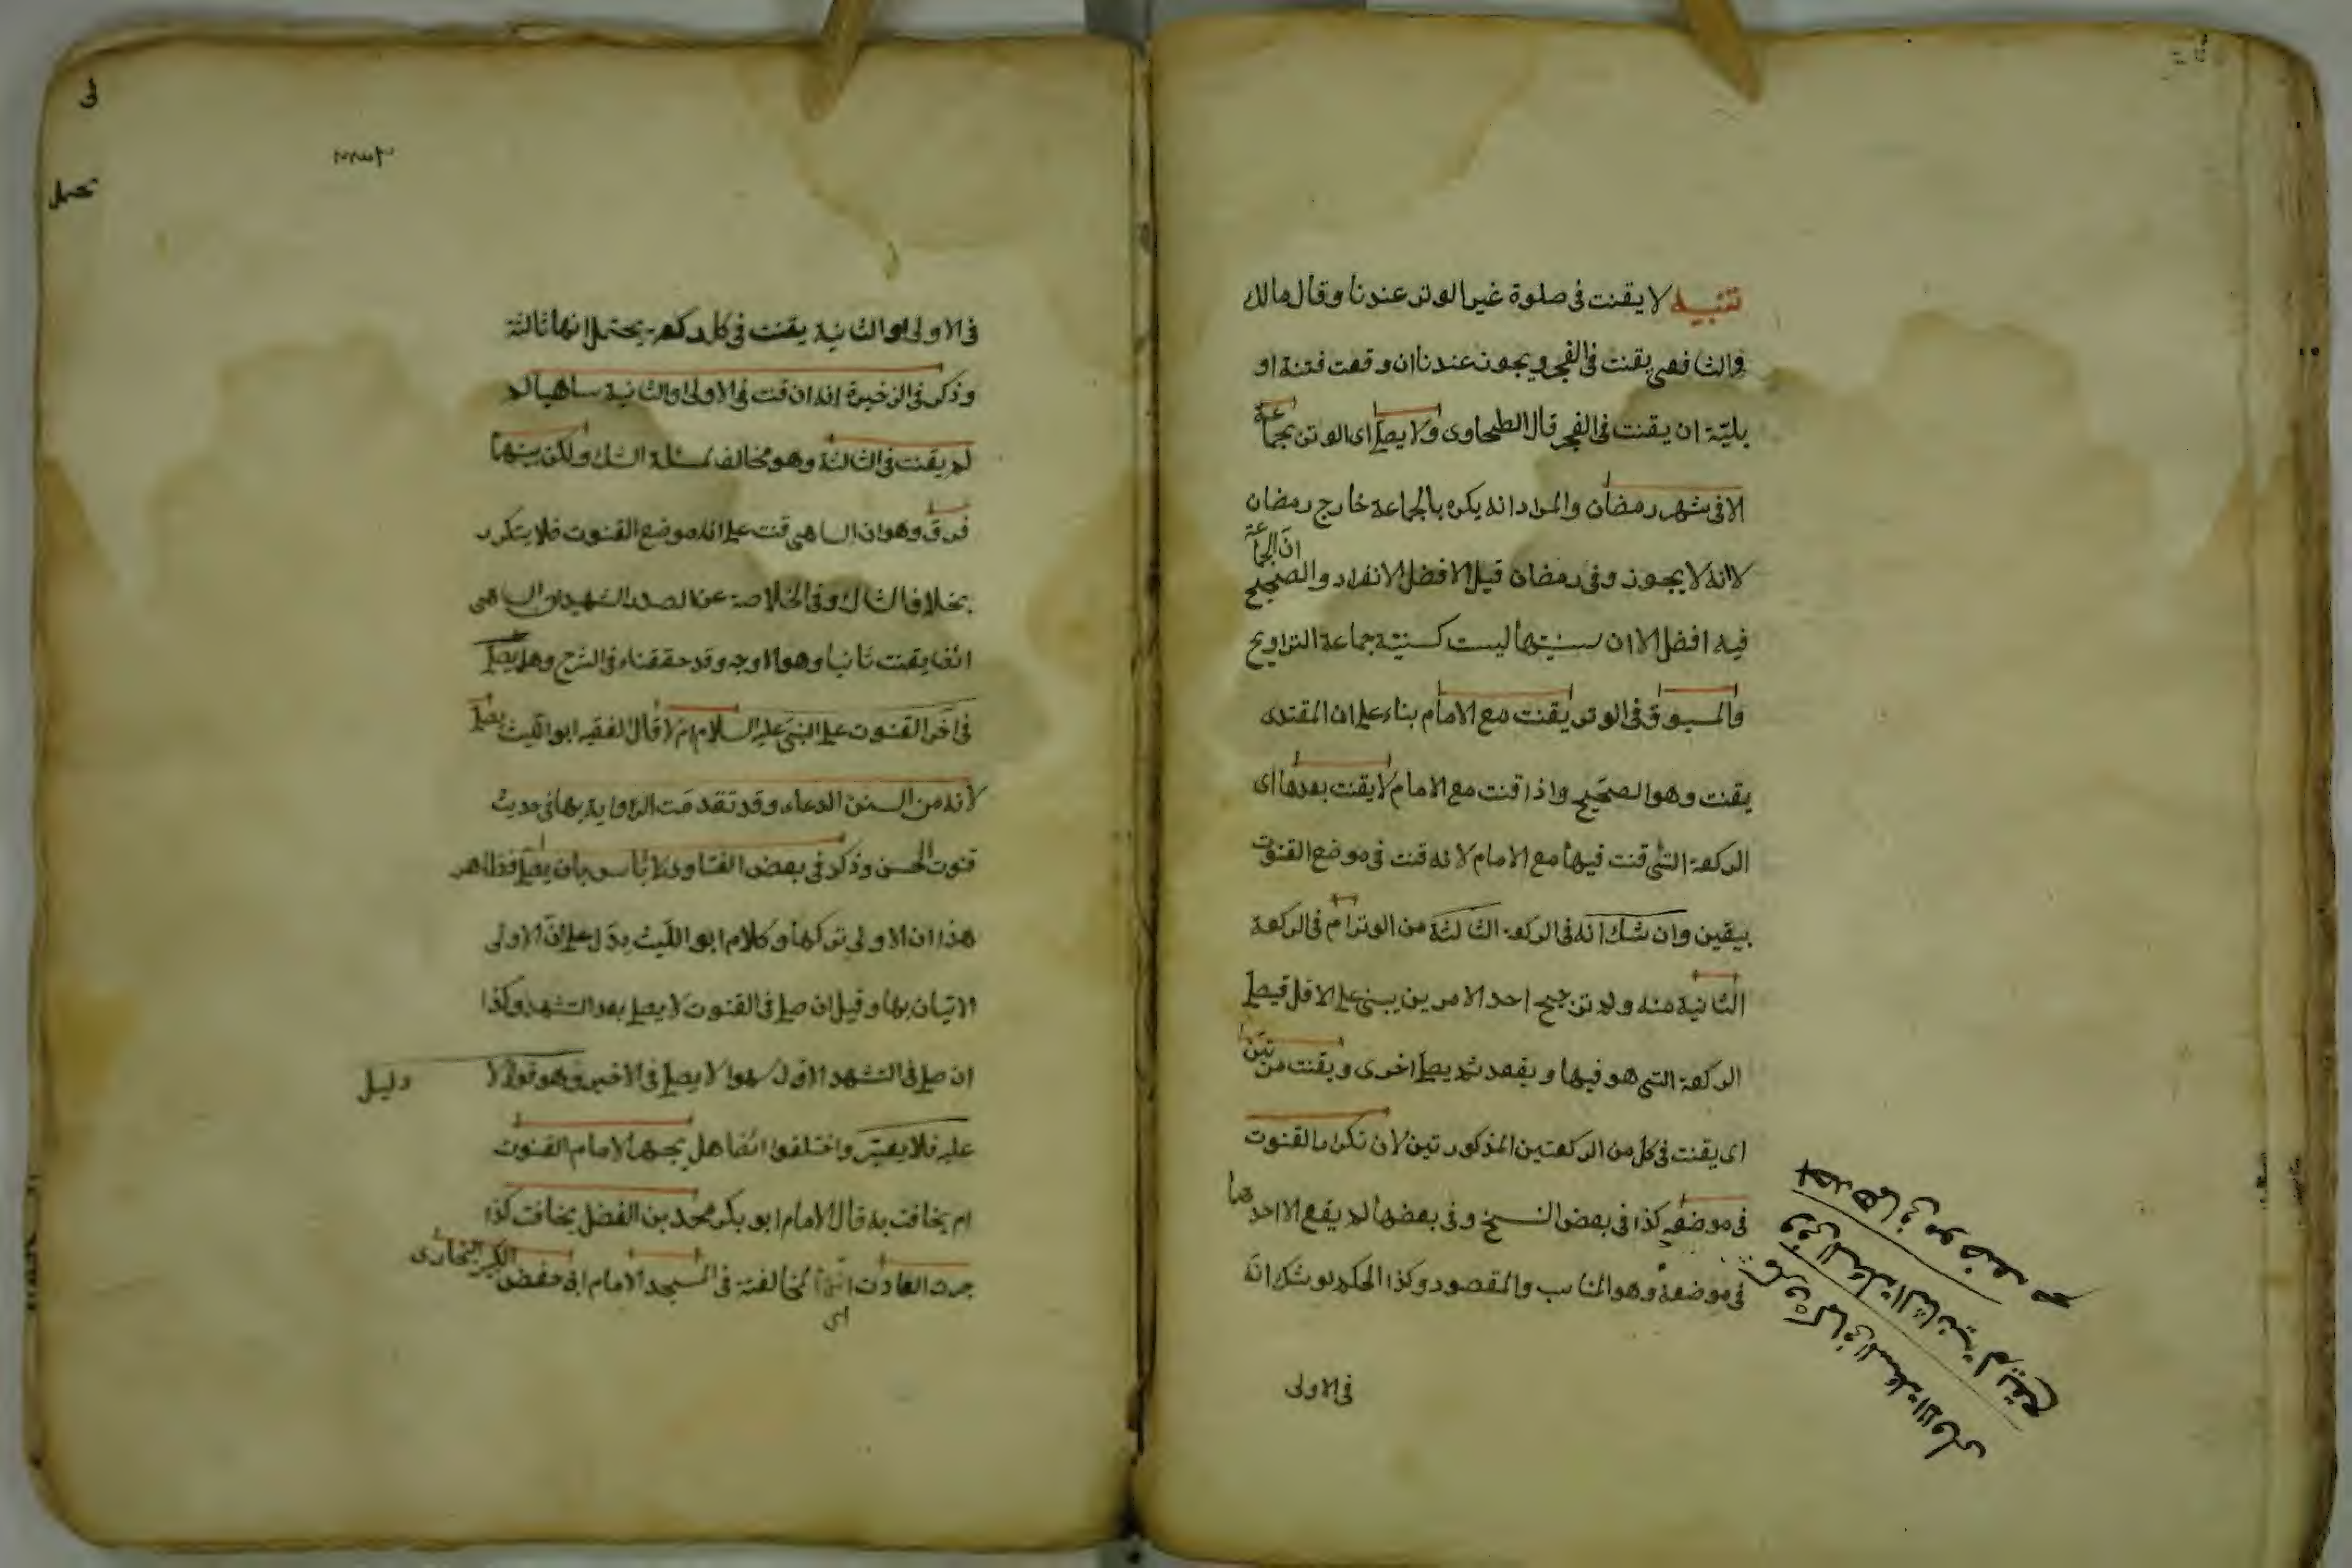 تنبيه لا يقنت في صلوة غير الوتر عندنا وقال مالك
والشافعي يقنت في الفجر ويجوز عندنا ان وقعت فتنة او
بليّة ان يقنت في الفجر قال الطحاوى ولا يصلى اى الوتر بجماعة
الا في شهر رمضان والمراد انه يكره بالجماعة خارج رمضان
لا انه لا يجوز وفى رمضان قيل الافضل الانفراد والصحيح انّ الجماعة
فيه افضل الا ان سنيتها ليست كسنية جماعة التراويح
والمسبوق في الوتر يقنت مع الامام بناء على ان المقتدى
يقنت وهو الصحيح واذا قنت مع الامام لا يقنت بعدها اى
الركعة التى قنت فيها مع الامام لانه قنت في موضع القنوت
بيقين وان شك انه في الركعة الثالثة من الوتر ام في الركعة
الثانية منه ولم ترجح احد الامرين يبنى على الاقل فيصلى
الركعة التى هو فيها ويقعد ثم يصلى اخرى ويقنت مرتين
اى يقنت في كل من الركعتين المذكورتين لان تكرار القنوت
في موضعه كذا في بعض النسخ وفى بعضها لم يقع الا احدهما
في موضعه وهو المناسب والمقصود وكذا الحكم لو شك انّه
في الاولى
بعدهما في موضعه
وفى النسخة الثانية لم يقع
في النسخة الاولى
فى الاولى او الثانية يقنت في كل ركعة يحتمل انها ثالثة
وذكر في الذخيرة انه ان قنت في الاولى او الثانية ساهيا لم
لم يقنت في الثالثة وهو مخالف لمسئلة الشك ولكن بينهما
فرق وهو ان الساهى قنت على انه موضع القنوت فلا يتكرر
بخلاف الشاك وفى الخلاصة عن الصدر الشهيد ان الساهى
ايضا يقنت ثانيا وهو الاوجه وقد حققناه في الشرح وهل يصلى
في آخر القنوت على النبي عليه السلام ام لا قال الفقيه ابو الليث يصلى
لانه من السنن الدعاء وقد تقدمت الرواية بها في حديث
قنوت الحسن وذكر في بعض الفتاوى لا بأس بان يصلى فظاهر
هذا ان الاولى تركها وكلام ابو الليث يدل على انّ الاولى
الاتيان بها وقيل ان صلى في القنوت لا يصلى بعد التشهد وكذا
ان صلى في التشهد الاول سهوا لا يصلى في الاخير وهو قول لا دليل
عليه فلا يعتبر واختلفوا ايضا هل يجهر الامام القنوت
ام يخافت به قال الامام ابو بكر محمد بن الفضل يخافت كذا
جرت العادت اى المخالفتة في المسجد الامام ابى حفص الكبير البخارى